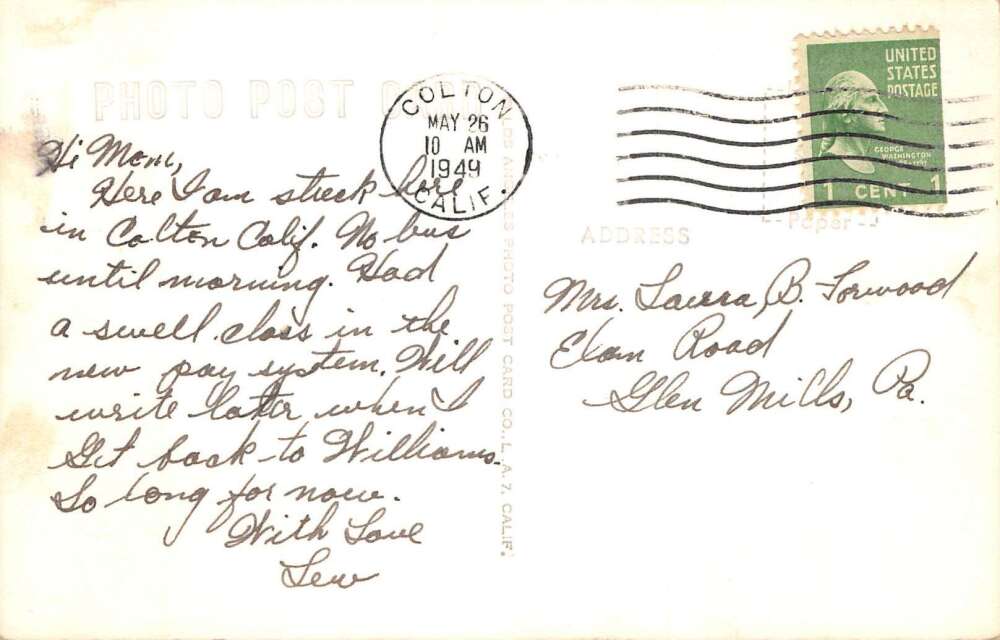 PHOTO POST CARD
COLTON
MAY 26
10 AM
1949
CALIF.
UNITED
STATES
POSTAGE
GEORGE
WASHINGTON
1 CENT 1
Paper
ADDRESS
Hi Mom,
Here I am stuck here
in Colton Calif. No bus
until morning. Had
a swell class in the
new pay system. Will
write later when I
Get back to Williams.
So long for now.
With Love
Lew
LOS ANGELES PHOTO POST CARD CO., L. A. 7, CALIF.
Mrs. Laura B. Forwood
Elam Road
Glen Mills, Pa.